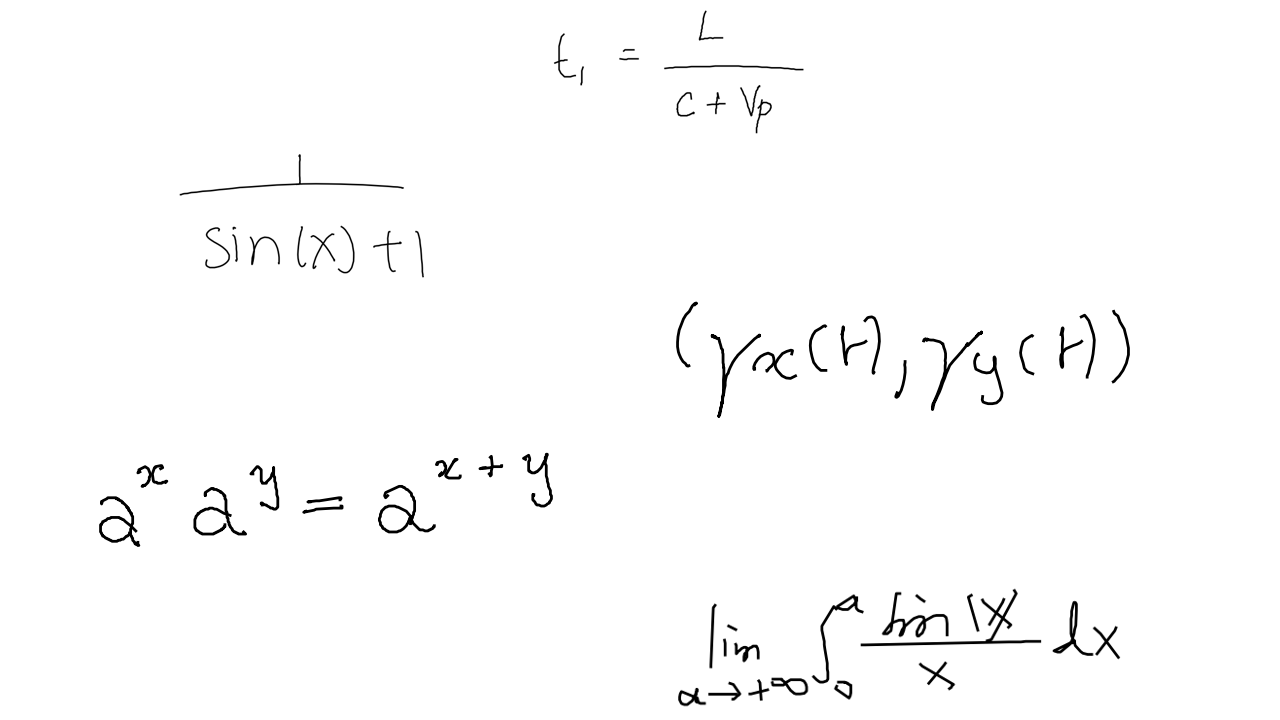 t₁ = L / (c + Vp)
1 / (sin(x) + 1)
(γx(t), γy(t))
a^x a^y = a^(x + y)
lim a→+∞ ∫₀^a sin(x) / x dx